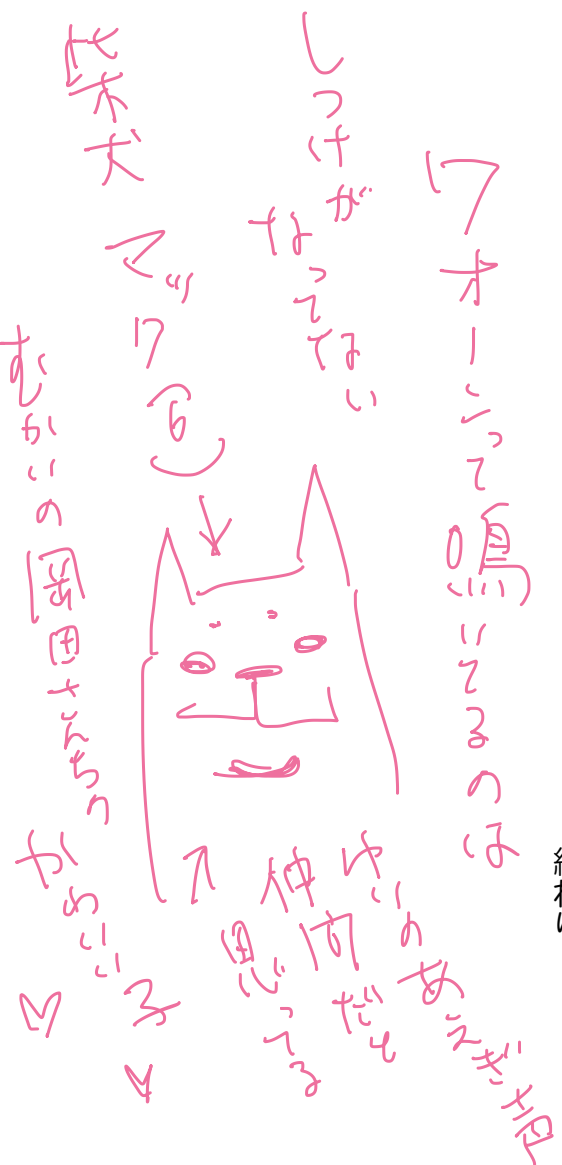 ワオーンって鳴いてるのは
しつけが
なってない
柴犬
マックワ(6)
むかいの岡田さんちの
かわいい子♡♡
ゆいのあえぎ声
仲間だと
思ってる